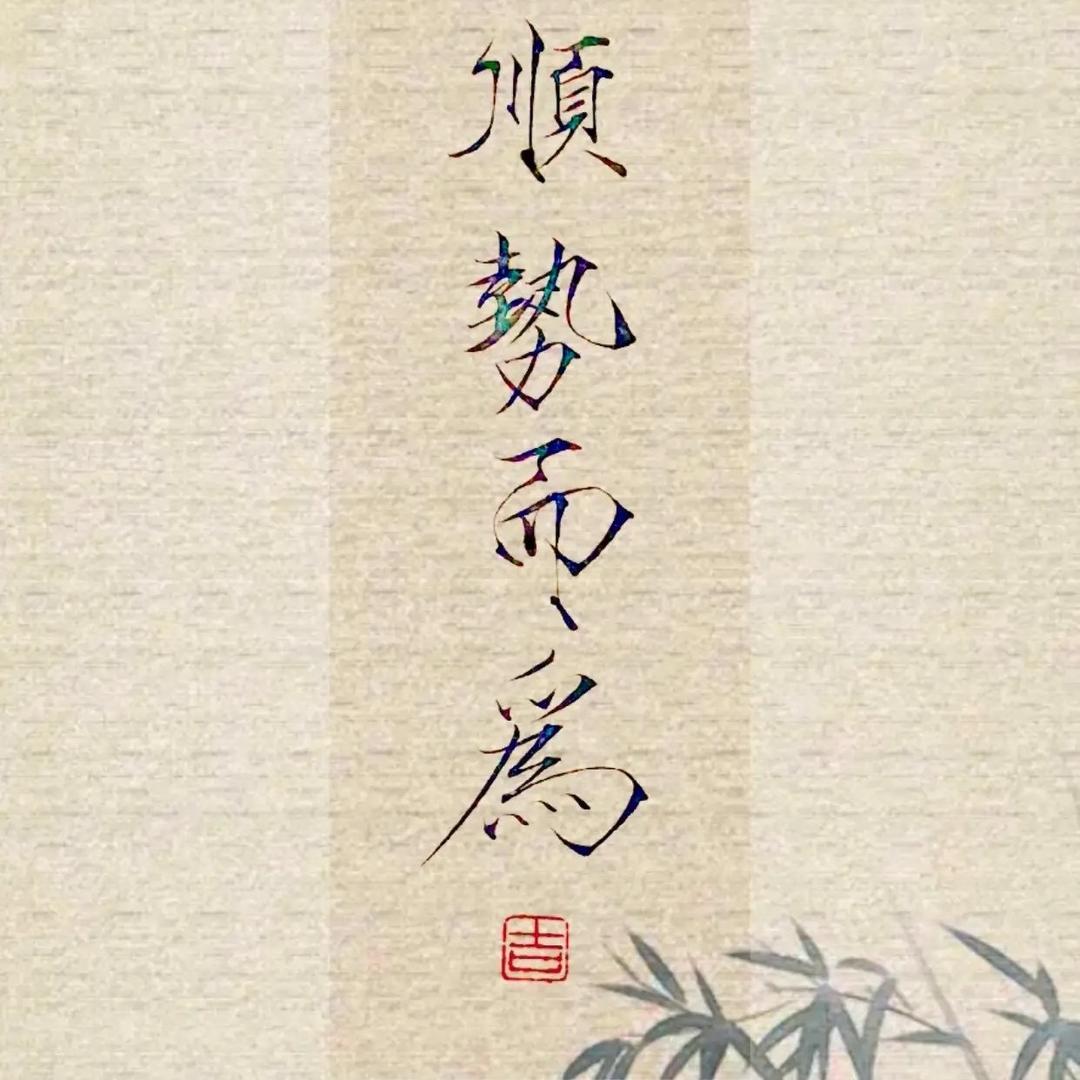 順勢而爲
吉